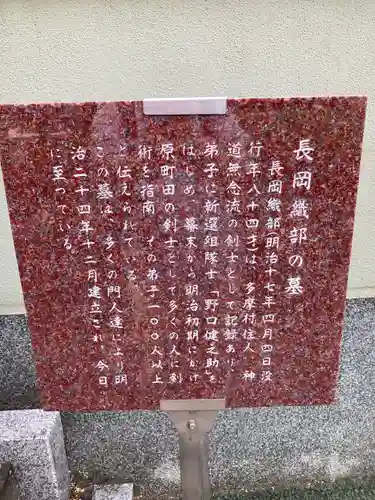 長岡織部の墓
長岡織部明治十七年四月四日没
行年八十四才は、多摩付住人、神
道無念流の剣士として記録あり、
弟子に新選組隊士「野口健之助」を
はじめ、幕末から明治初期にかけ
原町田の剣士として多くの人に剣
術を指南、その弟子一〇〇人以上
と伝えられている。
この墓は、多くの門人達により明
治二十四年十二月建立され、今日
に至っている。